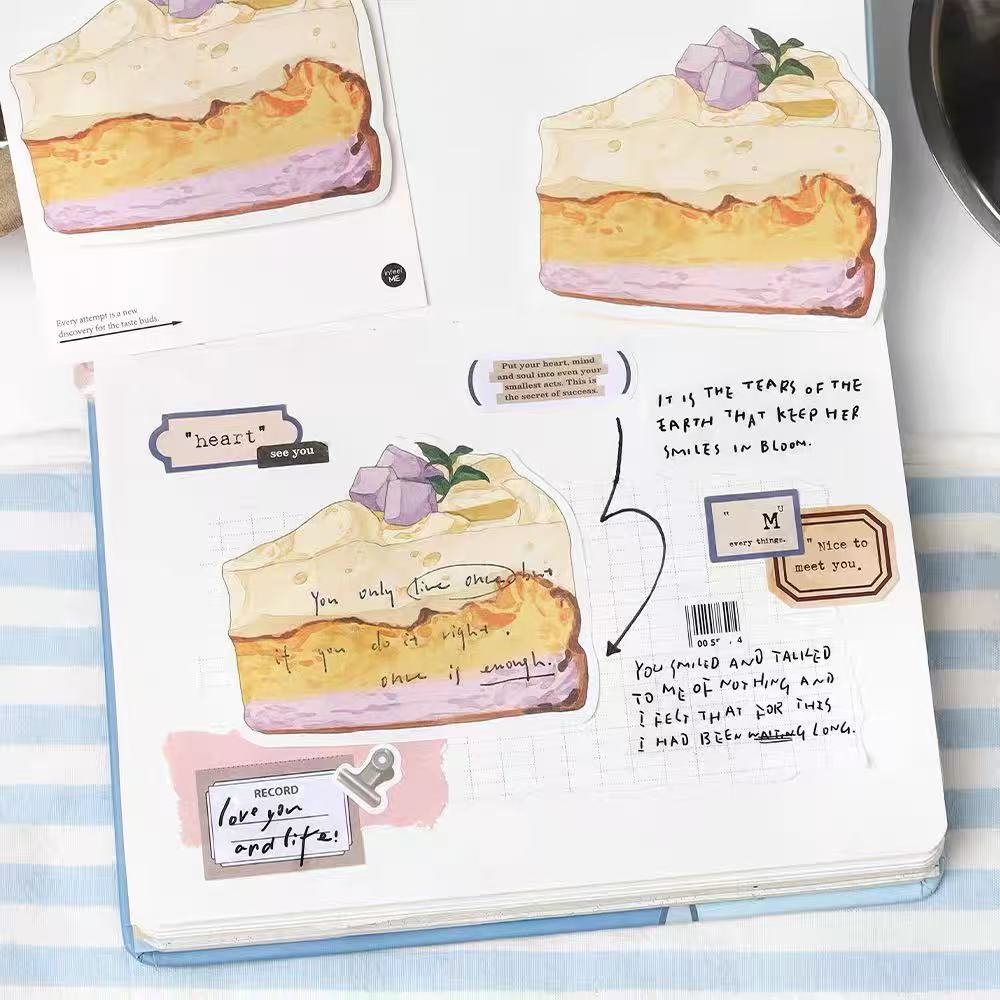 infeel
ME
Every attempt is a new
discovery for the taste buds.
Put your heart, mind
and soul into even your
smallest acts. This is
the secret of success.
IT IS THE TEARS OF THE
EARTH THAT KEEP HER
SMILES IN BLOOM.
"heart"
see you
" MU
every things.
" Nice to
meet you.
You only live once, but
if you do it right.
once is enough.
YOU SMILED AND TALKED
TO ME OF NOTHING AND
I FELT THAT FOR THIS
I HAD BEEN WAITING LONG.
RECORD
love you
and life!